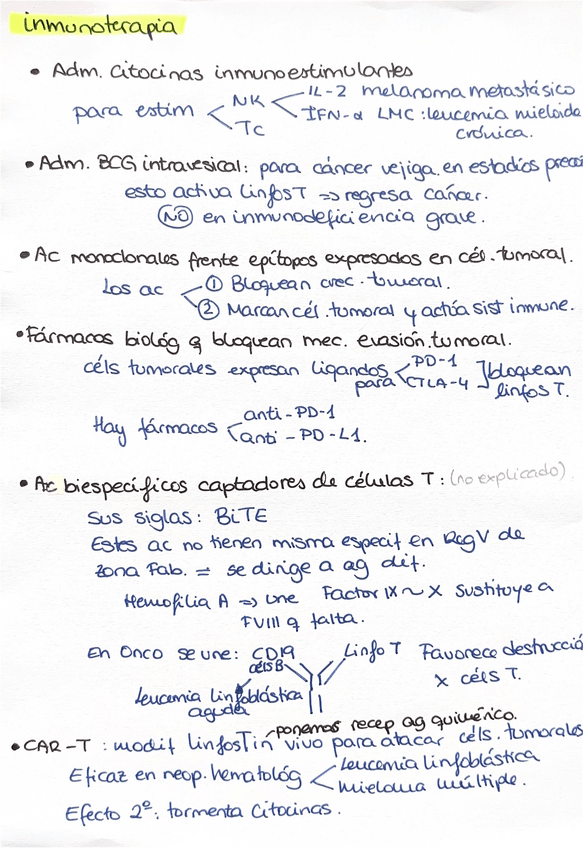 inmunoterapia
• Adm. Citocinas inmunoestimulantes
para estim NK IL-2 melanoma metastásico
Tc IFN-α LMC : leucemia mieloida
crónica.
• Adm. BCG intravesical: para cáncer vejiga en estadíos preco
esto activa linfos T => regresa cáncer.
NO en inmunodeficiencia grave.
• Ac monoclonales frente epítopos expresados en cél. tumoral.
Los ac ① Bloquean crec. tumoral.
② Marcan cél. tumoral y actúa sist inmune.
• Fármacos biológ q bloquean mec. evasión tumoral.
céls tumorales expresan ligandos para PD-1
CTLA-4 bloquean
linfos T.
Hay fármacos anti-PD-1
anti-PD-L1.
• Ac biespecíficos captadores de células T: (no explicado)
Sus siglas: BiTE
Estos ac no tienen misma especif en Reg V de
zona Fab. = se dirige a ag dif.
Hemofilia A => une Factor IX ~ X sustituye a
FVIII q falta.
En Onco se une: CD19 Linfo T Favorece destrucció
céls B x céls T.
Leucemia linfoblástica
aguda
ponemos recep ag quimérico.
• CAR-T : modif linfos T in vivo para atacar céls. tumorales
Eficaz en neop. hematológ Leucemia linfoblástica
mieloma múltiple.
Efecto 2º: tormenta Citocinas.